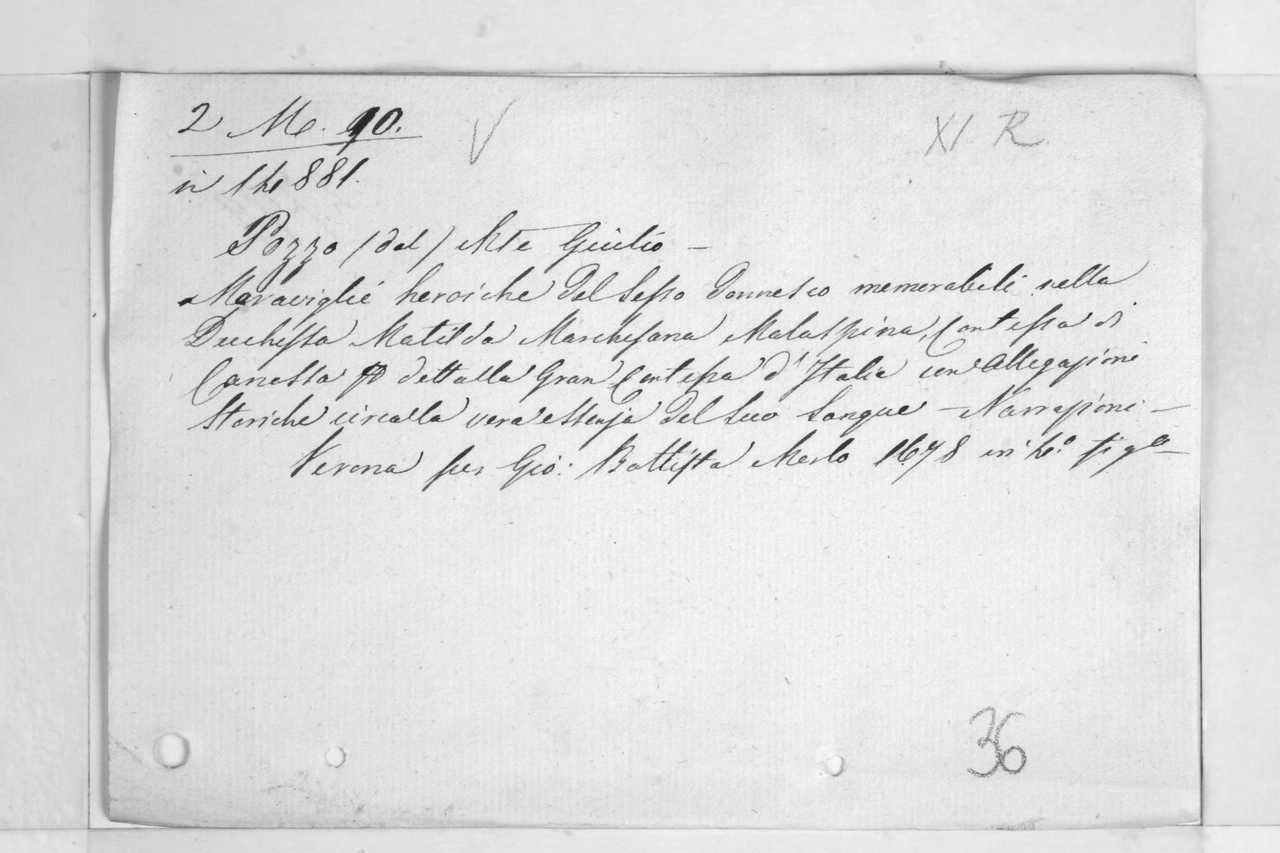 2 M. 90.
V
XI R
in 4to 881.
Pozzo (dal) Nte Giulio —
Maraviglie heroiche del Sesso donnesco memorabili nella
Duchessa Matilda Marchesana Malaspina, Contessa di
Canossa detta la Gran Contessa d'Italia con allegazioni
Storiche circa la vera essenza del suo Sangue — Narrazioni —
Verona per Gio: Battista Merlo 1678 in 4to figto
36